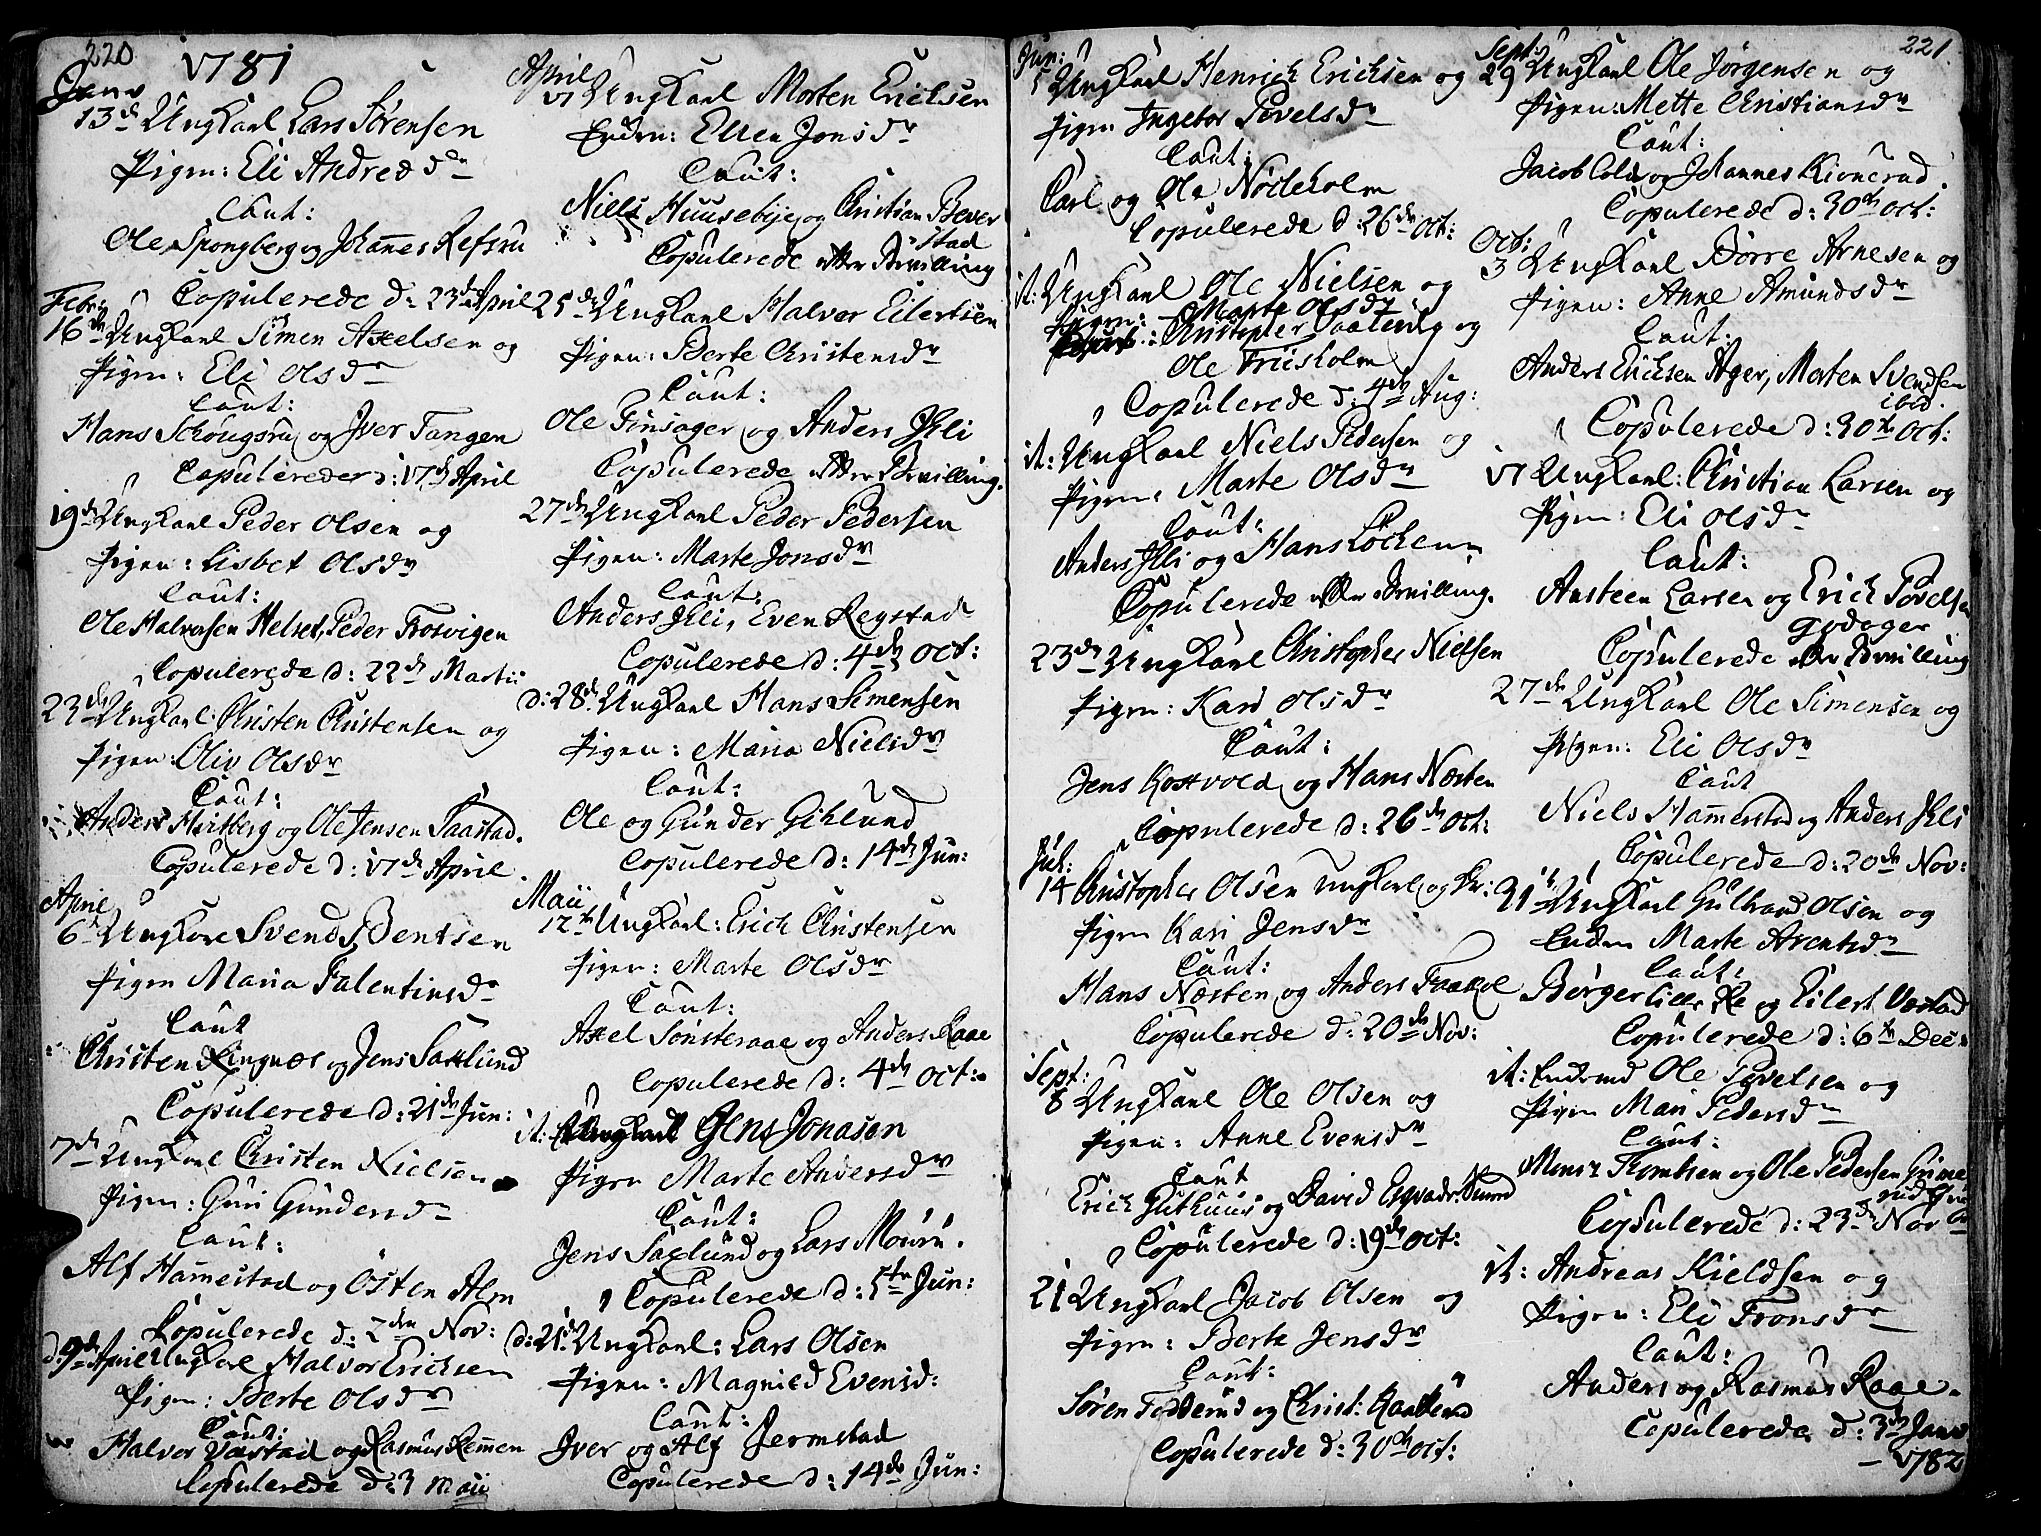 220
1781
Janv
13d Ungkarl Lars Sørensen
Pigen: Eli Andreæ Dr
Caut:
Ole Spongberg og Johannes Refsru
Copulerede d: 23de April
Febr:
16de Ungkarl Simen Axelsen og
Pigen: Eli Olsdr
Caut:
Hans Schougsru og Iver Tangen
Copulerede d: 17d April
19de Ungkarl Peder Olsen og
Pigen: Lisbet Olsdr
Caut:
Ole Halvorsen Helset, Peder Frosvigen
Copulerede d: 22d Martii
23de Ungkarl Christen Christensen og
Pigen: Oliv Olsdr
Caut:
Anders Hvitberg og Ole Jensen Saastad.
Copulerede d: 17de April.
April
6t Ungkarl Svend Bentsen
Pigen Maria Falentinsdr
Caut
Christen Lingnæs og Jens Saxlund
Copulerede d: 21de Jun:
7de Ungkarl Christen Nielsen
Pigen: Guri Gundersdr
Caut:
Alf Hamestad og Østen Alm
Copulerede d: 2den Nov:
d. 9de April Ungkarl Halvor Erichsen
Pigen: Berte Olsdr
Caut:
Halvor Væstad og Rasmus Remmen
Copulerede d: 3 Maii
April
17 Ungkarl Morten Erichsen
Enken: Ellen Jonsdr
Caut:
Niels Huusebye og Christian Bever
stad
Copulerede efter Bevilling
25de Ungkarl Halvor Eilertsen
Pigen: Berte Christensdr
Caut:
Ole Finsager og Anders Ihli
Copulerede efter Bevilling.
27de Ungkarl Peder Pedersen
Pigen: Marte Jonsdr
Caut:
Anders Ihli, Even Regstad
Copulerede d: 4de Oct:
d: 28de Ungkarl Hans Simensen
Pigen: Maria Nielsdr
Caut:
Ole og Gunder Giklund
Copulerede d: 14de Jun:
Maii
12te Ungkarl: Erich Christensen
Pigen: Marte Olsdr
Caut:
Axel Sønsteraae og Anders Raae
Copulerede d: 4de Oct:
it: Ungkarl Jens Jonasen
Pigen Marte Andersdr
Caut:
Jens Saxlund og Lars Mouru.
Copulerede d: 5te Jun:
d: 21de Ungkarl: Lars Olsen
Pigen: Magnild Evensd:
Caut:
Iver og Alf Jermstad
Copulerede d: 14de Jun:
Jun:
5 Ungkarl Henrich Erichsen og
Pigen Ingebor Povelsdr
Caut:
Carl og Ole Nøcleholm
Copulerede d: 26de Oct:
it: Ungkarl Ole Nielsen og
Pigen: Marte Olsdr
Caut: Christopher Saateng og
Ole Friisholm
Copulerede d: 4de Aug:
it: Ungkarl Niels Pedersen og
Pigen: Marte Olsdr
Caut:
Anders Ihli og Hans Løcken
Copulerede efter Bevilling.
23de Ungkarl Christopher Nielsen
Pigen: Kari Olsdr
Caut:
Jens Kostvold og Hans Næsten
Copulerede d: 26de Oct:
Jul:
14 Christopher Olsen Ungkarl og
Pigen Kari Jensdr
Caut:
Hans Næsten og Anders
Copulerede d: 20de Nov:
Sept:
8 Ungkarl Ole Olsen og
Pigen: Anne Evensdr
Caut
Erich Guthuus og David
Copulerede d: 19de Oct:
21 Ungkarl Jacob Olsen og
Pigen: Berte Jensdr
Caut:
Søren Fodderud og Christ:
Copulerede d: 30de Oct:
221.
Sept:
29 Ungkarl Ole Jørgensen og
Pigen: Mette Christiansdr
Caut:
Jacob Colda og Johannes Kionerud.
Copulerede d: 30de Oct:
Oct:
3 Ungkarl Børre Arnesen og
Pigen: Anne Amundsdr
Caut:
Anders Erichsen Ager, Morten Svendsen
ibid.
Copulerede d: 30te Oct:
17 Ungkarl: Christian Larsen og
Pigen: Eli Olsdr
Caut:
Ansteen Larsen og Erich Povelsen
Godager
Copulerede efter Bevilling
27de Ungkarl Ole Simensen og
Pigen: Eli Olsdr
Caut
Niels Hammerstad og Anders Ihli
Copulerede d: 20de Nov:
31te Ungkarl Gulbrand Olsen og
Enken Marte Arentsdr
Caut:
Børger og Eilert Væstad
Copulerede d: 6te Dec:
it: Enkemd Ole Povelsen og
Pigen Mari Pedersdr
Caut:
Mons Trondsen og Ole Pedersen Grime
rud
Copulerede d: 23de Nov
it: Andreas Kieldsen og
Pigen: Eli Fronsdr
Caut:
Anders og Rasmus Raae.
Copulerede d: 3de Janv
1782